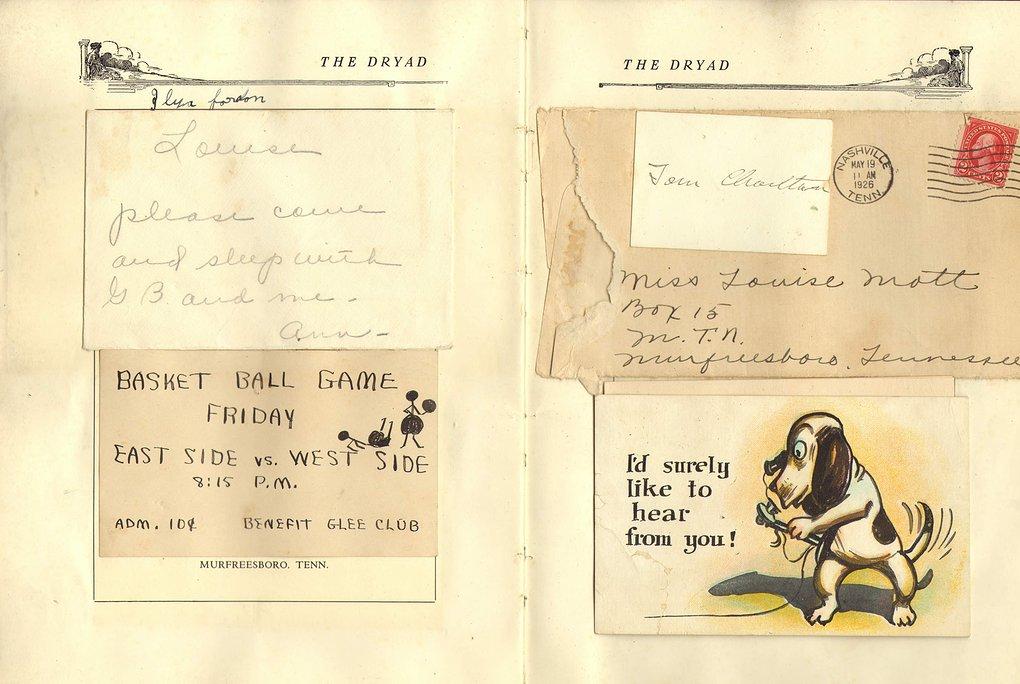 THE DRYAD
Louise
please come
and sleep with
G B. and me -
Ann -
BASKET BALL GAME
FRIDAY
EAST SIDE vs. WEST SIDE
8:15 P.M.
ADM. 10¢ BENEFIT GLEE CLUB
MURFREESBORO, TENN.
THE DRYAD
Tom Charlton
NASHVILLE
MAY 19
11 AM
1926
TENN.
2 CENTS 2
Miss Louise Mott
Box 15
M. T. N.
Murfreesboro, Tennessee
I'd surely
like to
hear
from you!